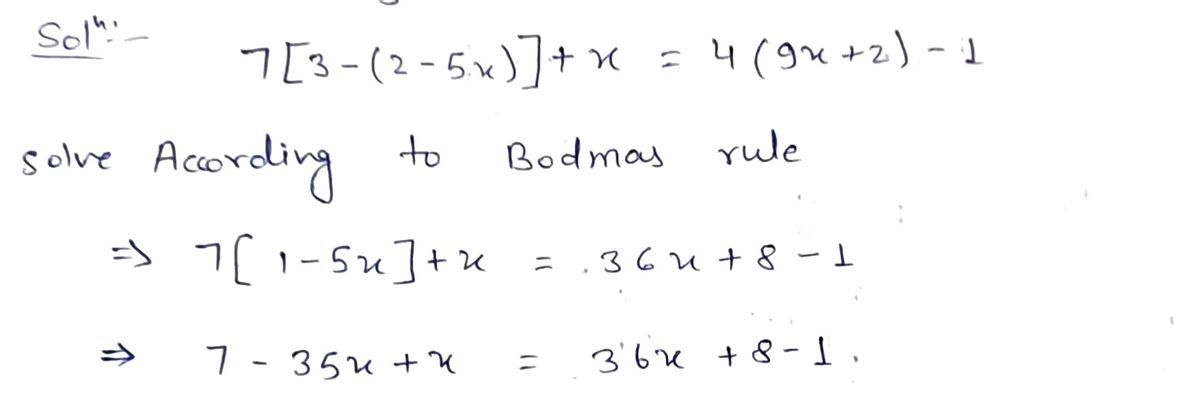 Solⁿ:-
7[3-(2-5x)]+x = 4(9x+2)-1
solve According to Bodmas rule
⇒ 7[1-5x]+x = 36x+8-1
⇒ 7-35x+x = 36x+8-1.